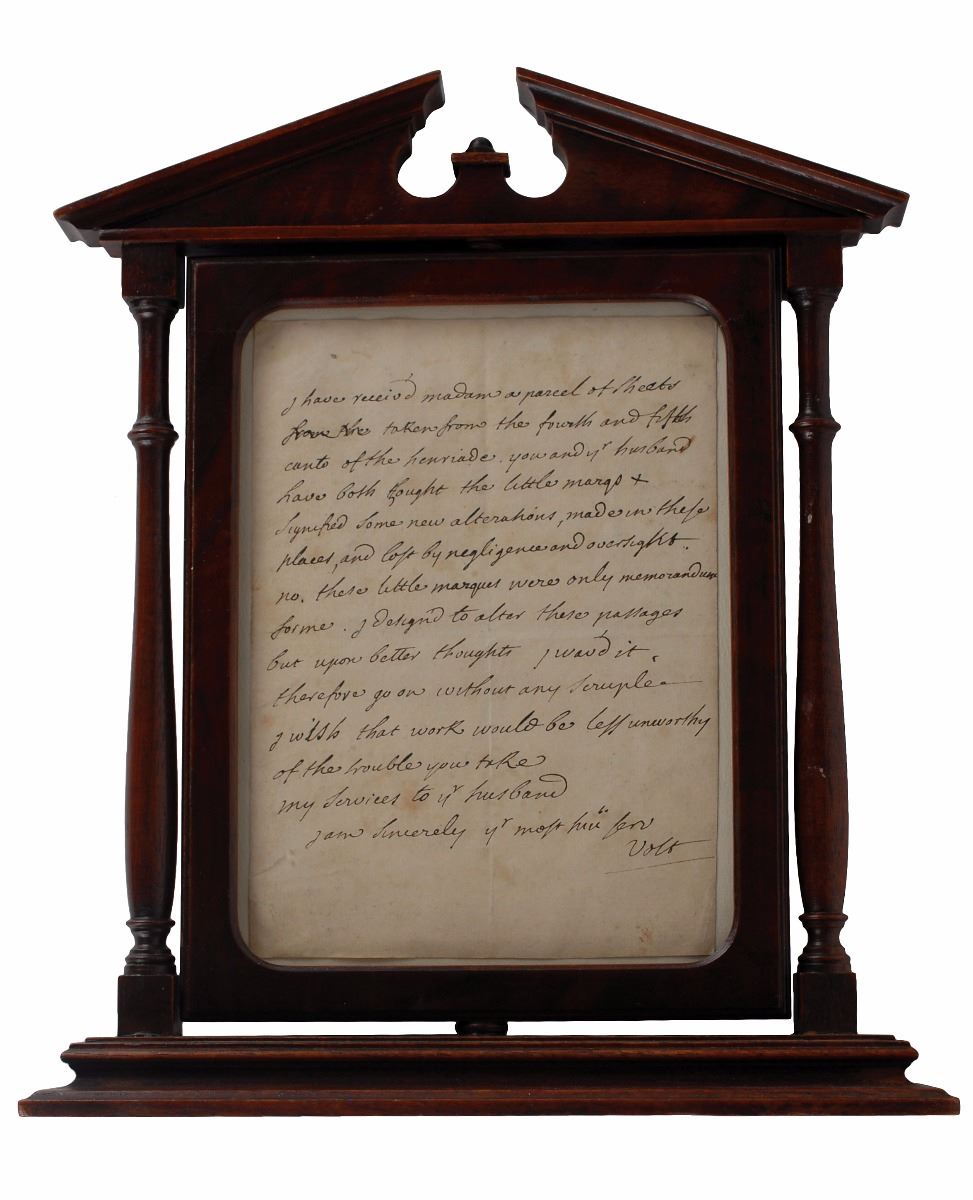 J have receiv'd madam a parcel of sheets
from the taken from the fourth and fifth
canto of the henriade. you and yr husband
have both thought the little marqs +
signified some new alterations, made in these
places, and lost by negligence and oversight.
no. these little marques were only memorandum
for me. J design'd to alter these passages
but upon better thoughts J wav'd it.
therefore go on without any scruple.
J wish that work would be less unworthy
of the trouble you take
my services to yr husband
J am sincerely yr most hũ serv
Volt